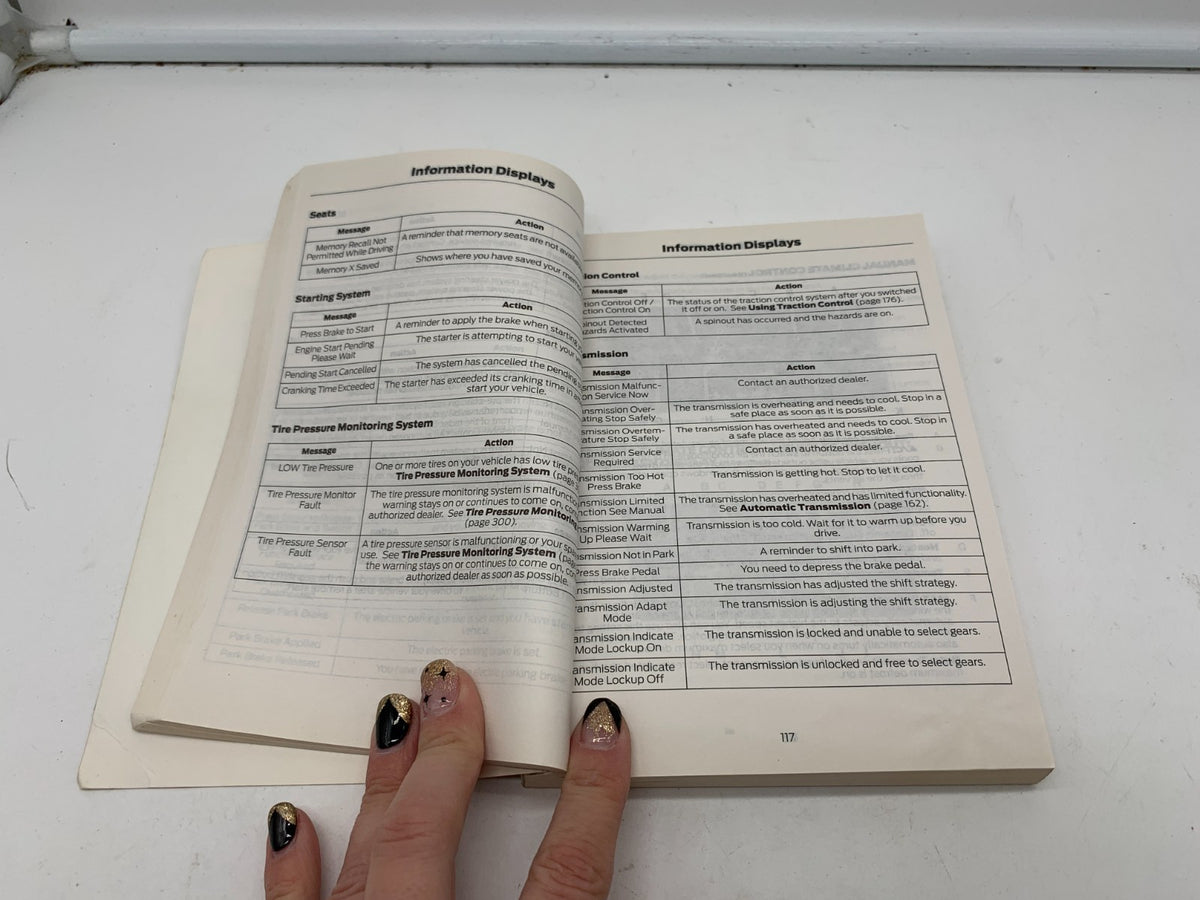 Information Displays
Seats
Message
Action
Memory Recall Not
Permitted While Driving
A reminder that memory seats are not
Memory X Saved
Shows where you have saved your
Starting System
Message
Action
Press Brake to Start
A reminder to apply the brake when starting
Engine Start Pending
Please Wait
The starter is attempting to start
Pending Start Cancelled
The system has cancelled the pending
Cranking Time Exceeded
The starter has exceeded its cranking time in
start your vehicle.
Tire Pressure Monitoring System
Message
Action
LOW Tire Pressure
One or more tires on your vehicle has low tire
Tire Pressure Monitoring System
Tire Pressure Monitor
Fault
The tire pressure monitoring system is
warning stays on or continues to come on,
authorized dealer. See Tire Pressure Monitoring
(page 300).
Tire Pressure Sensor
Fault
A tire pressure sensor is malfunctioning or your
use. See Tire Pressure Monitoring System
the warning stays on or continues to come on,
authorized dealer as soon as possible.
Park Brake Applied
The electric parking brake is set.
Park Brake Released
Information Displays
ion Control
Message
Action
tion Control Off /
ction Control On
The status of the traction control system after you switched
it off or on. See Using Traction Control (page 176).
inout Detected
zards Activated
A spinout has occurred and the hazards are on.
smission
Message
Action
smission Malfunc-
on Service Now
Contact an authorized dealer.
nsmission Over-
ating Stop Safely
The transmission is overheating and needs to cool. Stop in a
safe place as soon as it is possible.
smission Overtem-
ature Stop Safely
The transmission has overheated and needs to cool. Stop in
a safe place as soon as it is possible.
nsmission Service
Required
Contact an authorized dealer.
nsmission Too Hot
Press Brake
Transmission is getting hot. Stop to let it cool.
nsmission Limited
nction See Manual
The transmission has overheated and has limited functionality.
See Automatic Transmission (page 162).
nsmission Warming
Up Please Wait
Transmission is too cold. Wait for it to warm up before you
drive.
nsmission Not in Park
A reminder to shift into park.
Press Brake Pedal
You need to depress the brake pedal.
ansmission Adjusted
The transmission has adjusted the shift strategy.
ansmission Adapt
Mode
The transmission is adjusting the shift strategy.
ansmission Indicate
Mode Lockup On
The transmission is locked and unable to select gears.
ansmission Indicate
Mode Lockup Off
The transmission is unlocked and free to select gears.
117